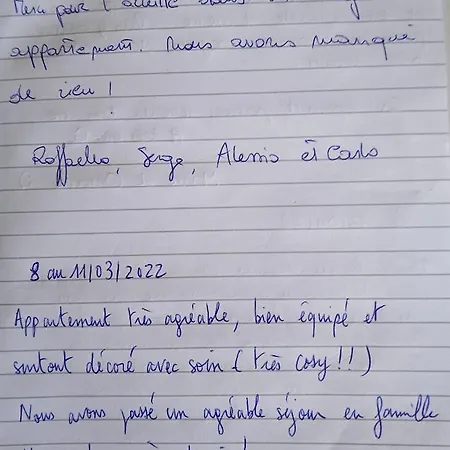 Merci pour l'accueil
appartement. Nous avons manqué
de rien !
Raffaella, Serge, Alessio et Carlo
8 au 11/03/2022
Appartement très agréable, bien équipé et
surtout décoré avec soin (très cosy !!)
Nous avons passé un agréable séjour en famille